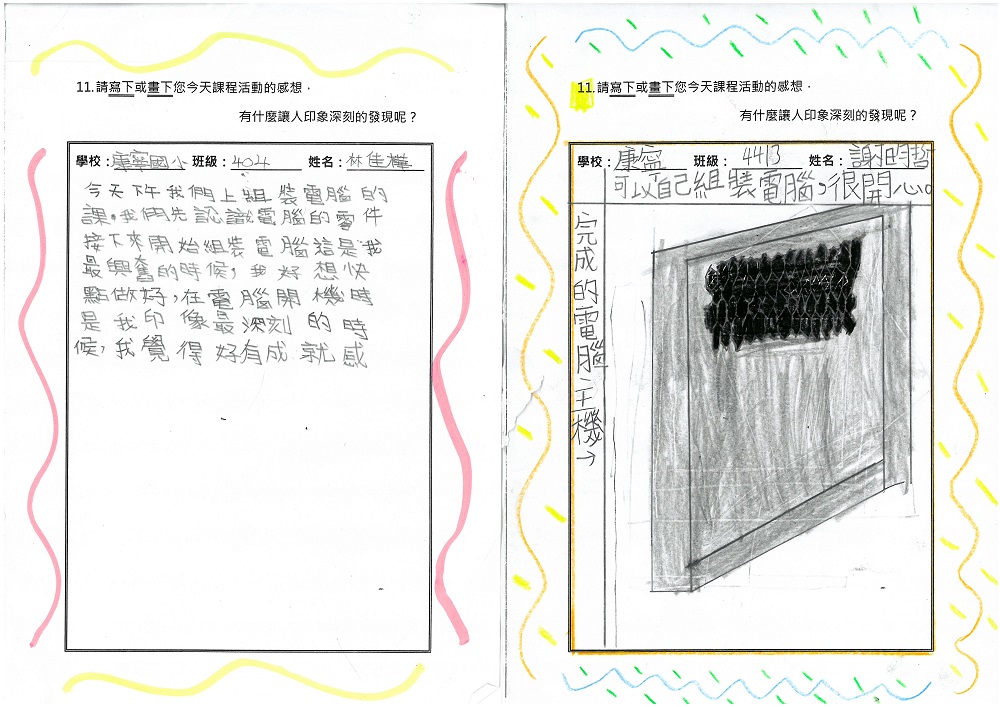 11.請寫下或畫下您今天課程活動的感想，
有什麼讓人印象深刻的發現呢？
學校：康寧國小 班級：404 姓名：林佳樺
今天下午我們上組裝電腦的
課。我們先認識電腦的零件
接下來開始組裝電腦這是我
最興奮的時候，我好想快
點做好，在電腦開機時
是我印像最深刻的時
候，我覺得好有成就感
11.請寫下或畫下您今天課程活動的感想，
有什麼讓人印象深刻的發現呢？
學校：康寧 班級：4413 姓名：謝明哲
可以自己組裝電腦，很開心。
完成的電腦主機→